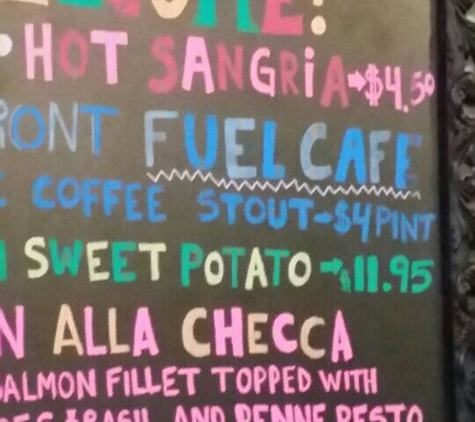 HOT SANGRIA→$4.50
FUEL CAFE
COFFEE STOUT→$4 PINT
SWEET POTATO →$11.95
ALLA CHECCA
SALMON FILLET TOPPED WITH
AND PENNE PESTO